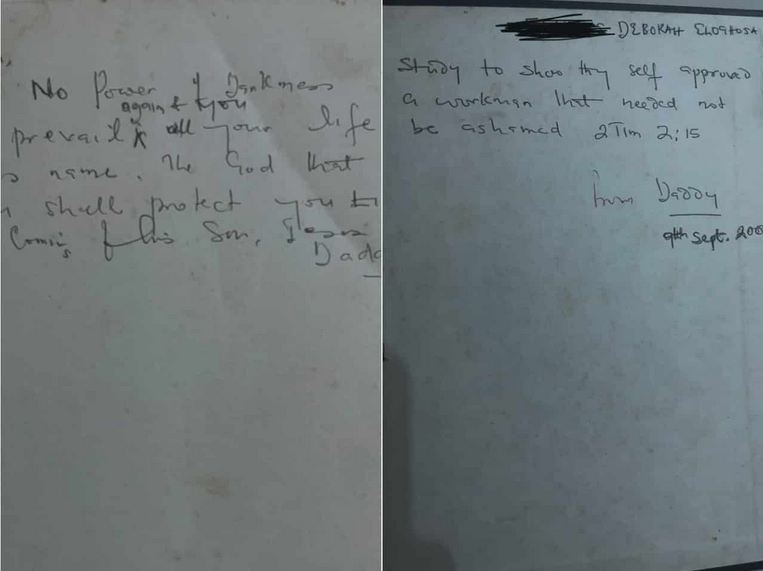 No Power of Darkness
against you
prevail all your life
name. The God that
shall protect you
Coming of his Son, Jesus
Dadd
DEBORAH ELOGHOSA
Study to shoo thy self approved
a workman that needed not
be ashamed 2Tim 2:15
from Daddy
9th Sept. 200